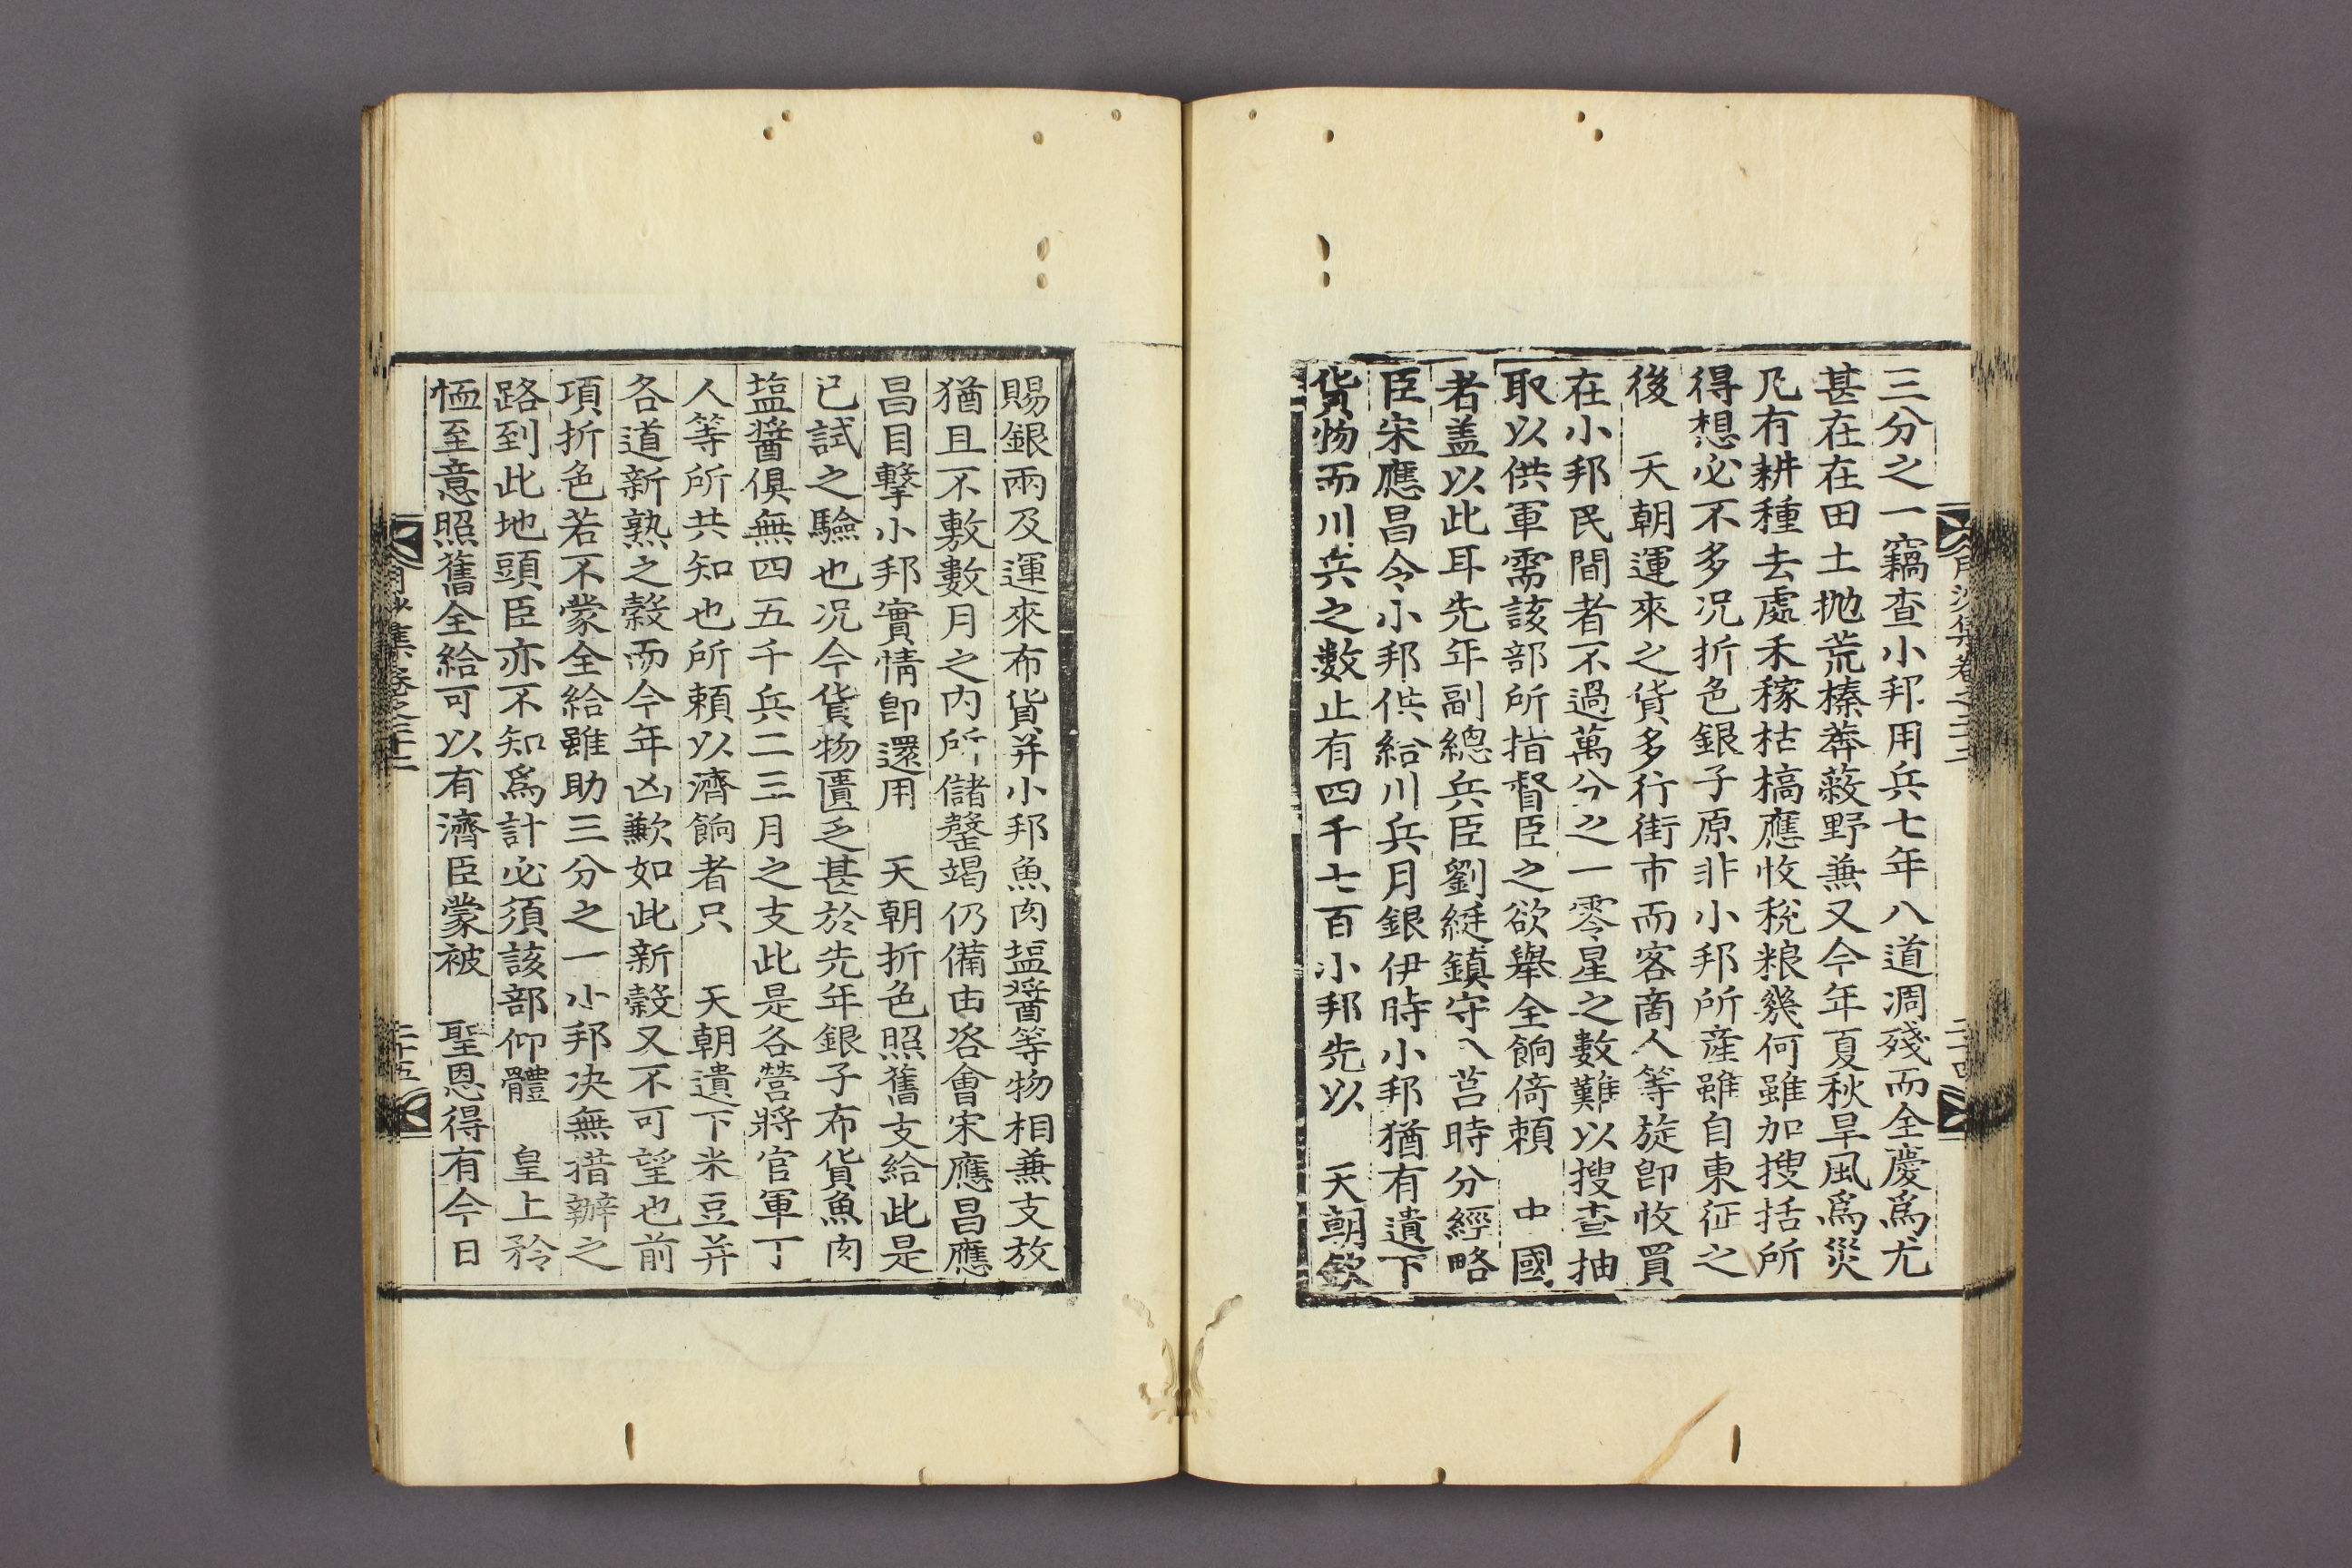 三分之一竊查小邦用兵七年八道凋殘而全慶爲尤
甚在在田土抛荒榛莽蔽野兼又今年夏秋旱風爲災
凡有耕種去處禾稼枯槁應收稅粮幾何雖加搜括所
得想必不多况折色銀子原非小邦所産雖自東征之
後　天朝運來之貨多行街市而客商人等旋卽收買
在小邦民間者不過萬分之一零星之數難以搜查抽
取以供軍需該部所指督臣之欲舉全餉倚賴　中國
者盖以此耳先年副總兵臣劉綎鎭守八莒時分經略
臣宋應昌令小邦供給川兵月銀伊時小邦猶有遺下
貨物而川兵之數止有四千七百小邦先以　天朝欽
賜銀兩及運來布貨并小邦魚肉塩醬等物相兼支放
猶且不敷數月之内所儲罄竭仍備由咨會宋應昌應
昌目擊小邦實情卽還用　天朝折色照舊支給此是
已試之驗也况今貨物匱乏甚於先年銀子布貨魚肉
塩醬俱無四五千兵二三月之支此是各營將官軍丁
人等所共知也所賴以濟餉者只　天朝遺下米豆并
各道新熟之穀而今年凶歉如此新穀又不可望也前
項折色若不蒙全給雖助三分之一小邦决無措辦之
路到此地頭臣亦不知爲計必須該部仰體　皇上矜
恤至意照舊全給可以有濟臣蒙被　聖恩得有今日
月沙集卷之二十二
二十五